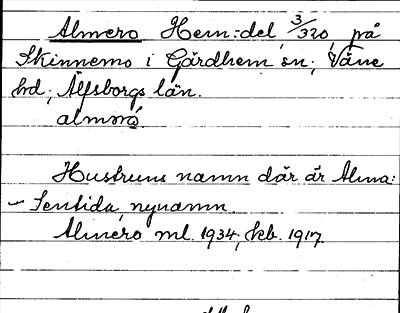 Almero Hem:del 3/320, på
Skinnemo i Gärdhem sn; Väne
hd; Älfsborgs län.
almmo
Hustruns namn där är Alma:
– Sentida nynamn.
Almero ml. 1934, kb. 1917.